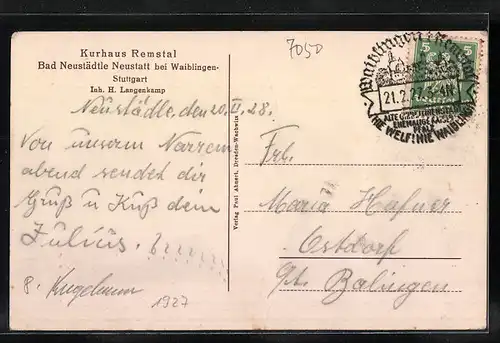 Kurhaus Remstal
Bad Neustädtle Neustatt bei Waiblingen-
Stuttgart
Inh. H. Langenkamp
7050
Neustädtle, den 20. II. 28.
Von unserm Narren
abend sendet dir
Gruß u Kuß dein
Julius.
1927
Verlag Paul Ahnert, Dresden-Wachwitz
Waiblingen
21.2.27.
ALTE
EHEMALIGE
PFALZ
HIE WELF! HIE WAIBLINGEN
5
5
Frl.
Maria Hafner
Ostdorf
Balingen